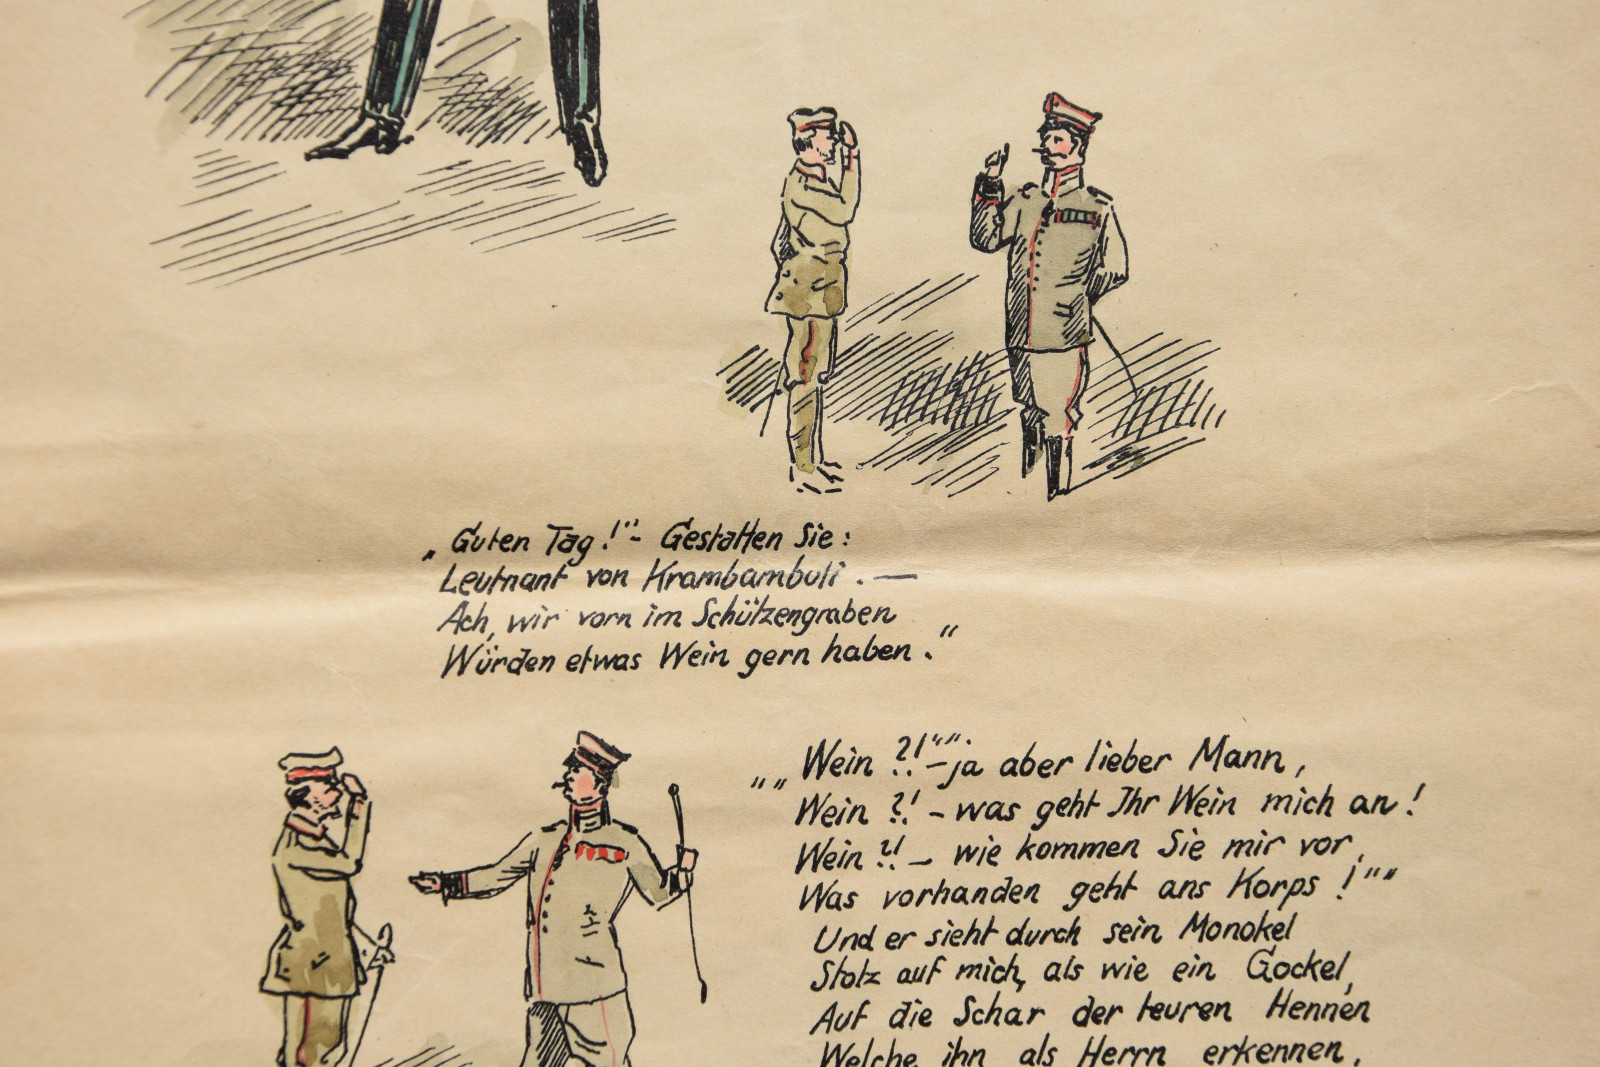 „Guten Tag!“- Gestatten Sie:
Leutnant von Krambambuli. —
Ach, wir vorn im Schützengraben
Würden etwas Wein gern haben.“
„„Wein ?!““- ja aber lieber Mann,
Wein ?! - was geht Ihr Wein mich an!
Wein ?! - wie kommen Sie mir vor,
Was vorhanden geht ans Korps!““
Und er sieht durch sein Monokel
Stolz auf mich, als wie ein Gockel,
Auf die Schar der teuren Hennen
Welche ihn als Herrn erkennen,